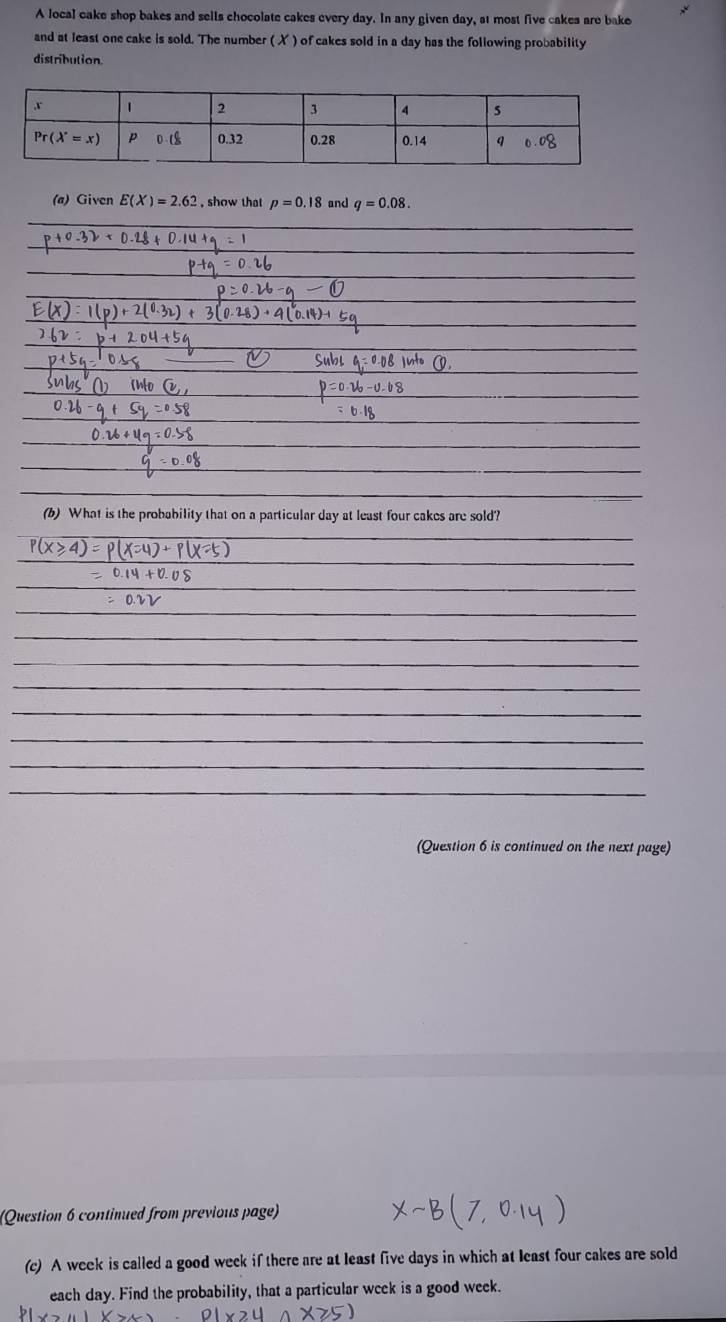 A local cake shop bakes and sells chocolate cakes every day. In any given day, at most five cakes are bake
and at least one cake is sold. The number ( X ) of cakes sold in a day has the following probability
distribution.
x 1 2 3 4 5
Pr(X = x) p 0.18 0.32 0.28 0.14 q 0.08
(a) Given E(X) = 2.62 , show that p = 0.18 and q = 0.08 .
p+0.32 + 0.28 + 0.14 + q = 1
p+q = 0.26
p = 0.26 - q — ①
E(X) = 1(p) + 2(0.32) + 3(0.28) + 4(0.14) + 5q
2.62 = p + 2.04 + 5q
p + 5q = 0.58 — ②
subs ① into ②,
0.26 - q + 5q = 0.58
0.26 + 4q = 0.58
q = 0.08
subs q = 0.08 into ①,
p = 0.26 - 0.08
= 0.18
(b) What is the probability that on a particular day at least four cakes are sold?
P(X ≥ 4) = P(X=4) + P(X=5)
= 0.14 + 0.08
= 0.22
(Question 6 is continued on the next page)
(Question 6 continued from previous page)
X ~ B(7, 0.14)
(c) A week is called a good week if there are at least five days in which at least four cakes are sold
each day. Find the probability, that a particular week is a good week.
P(X ≥ 4 ∩ X ≥ 5)